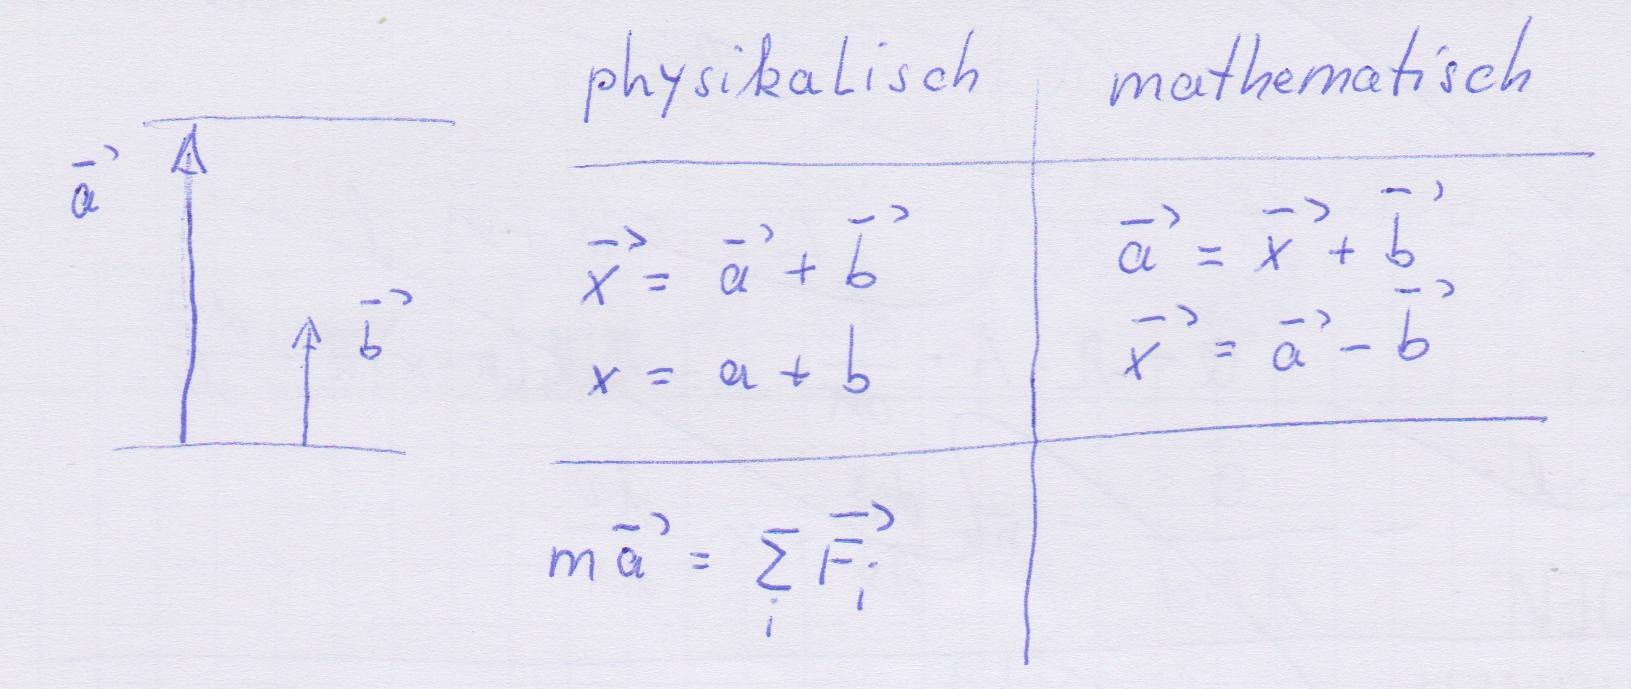 physikalisch
mathematisch
a⃗
b⃗
x⃗ = a⃗ + b⃗
x = a + b
a⃗ = x⃗ + b⃗
x⃗ = a⃗ − b⃗
m a⃗ = ∑ᵢ F⃗ᵢ